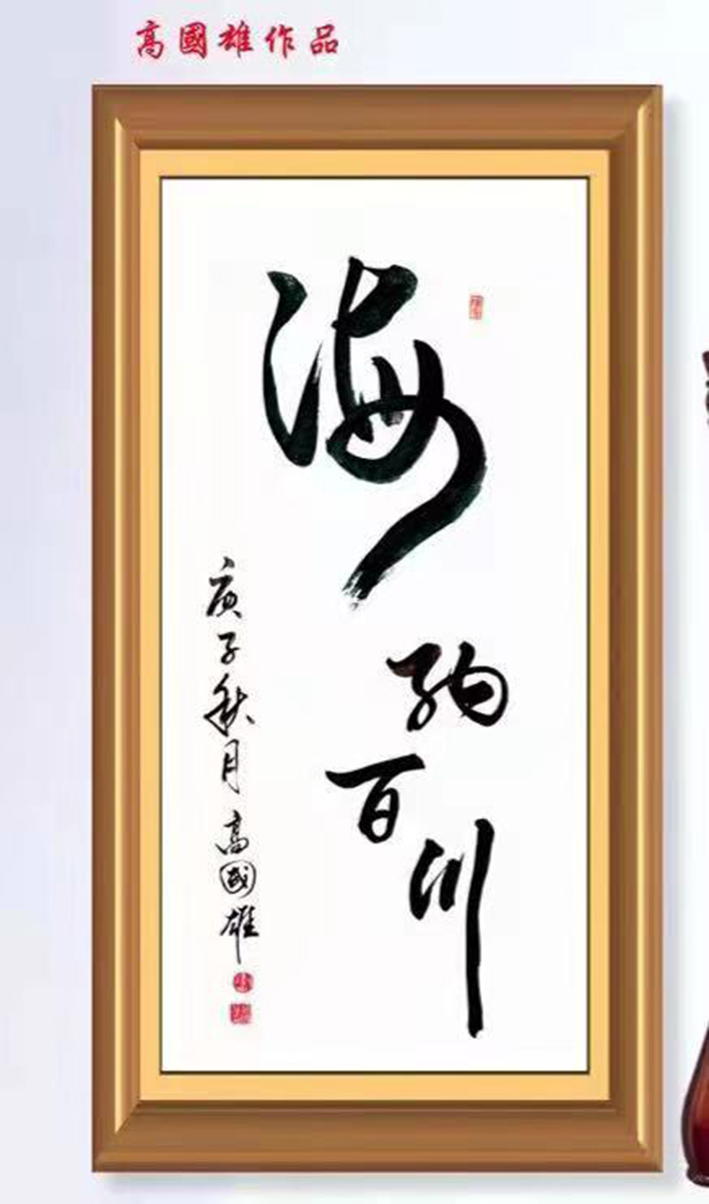 高國雄作品
海纳百川
庚子秋月高國雄